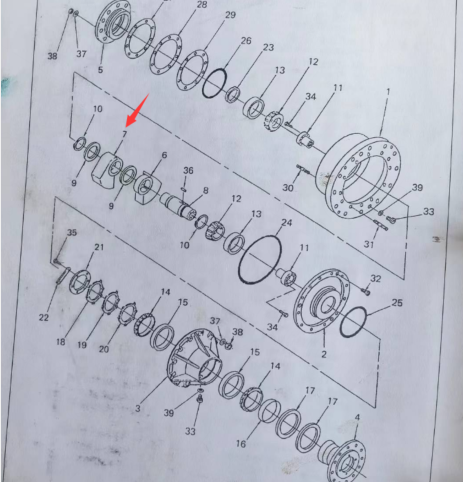 28
29
26
23
13
12
34
11
1
38
37
5
10
7
6
36
8
9
9
12
13
24
10
30
39
33
31
11
32
35
21
14
15
37
38
34
2
25
22
18
19
20
3
15
14
17
17
4
39
33
16